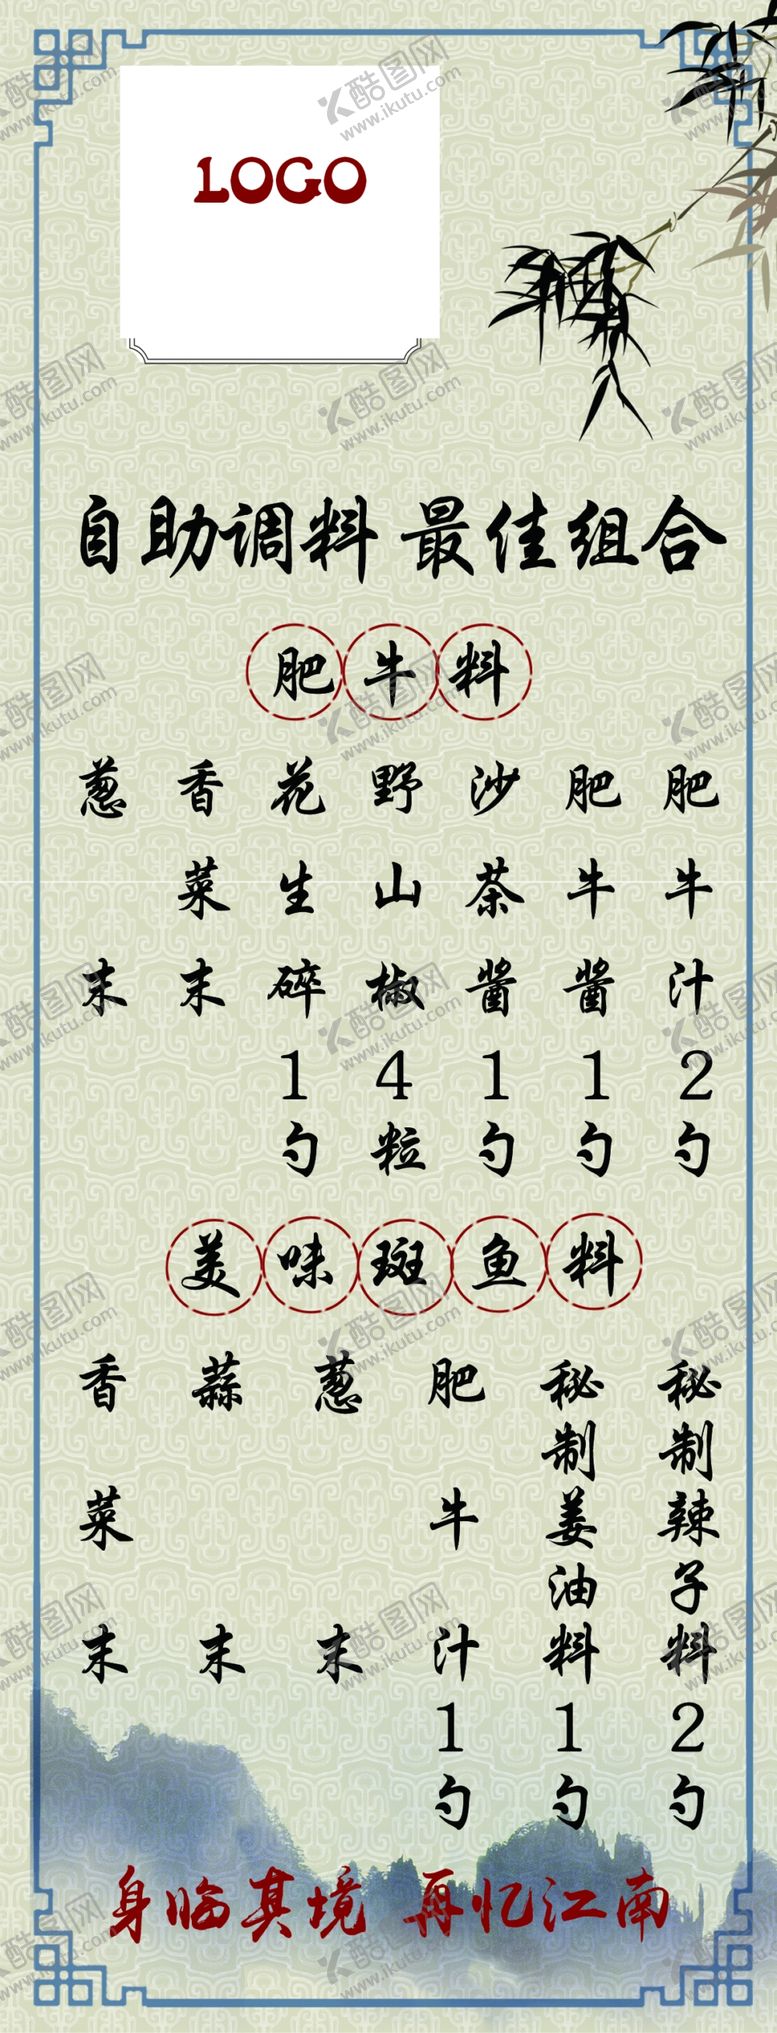 LOGO
自助调料 最佳组合
肥牛料
肥牛汁2勺
肥牛酱1勺
沙茶酱1勺
野山椒4粒
花生碎1勺
香菜末
葱末
美味斑鱼料
秘制辣子料2勺
秘制姜油料1勺
肥牛汁1勺
葱末
蒜末
香菜末
身临其境 再忆江南
酷图网
www.ikutu.com